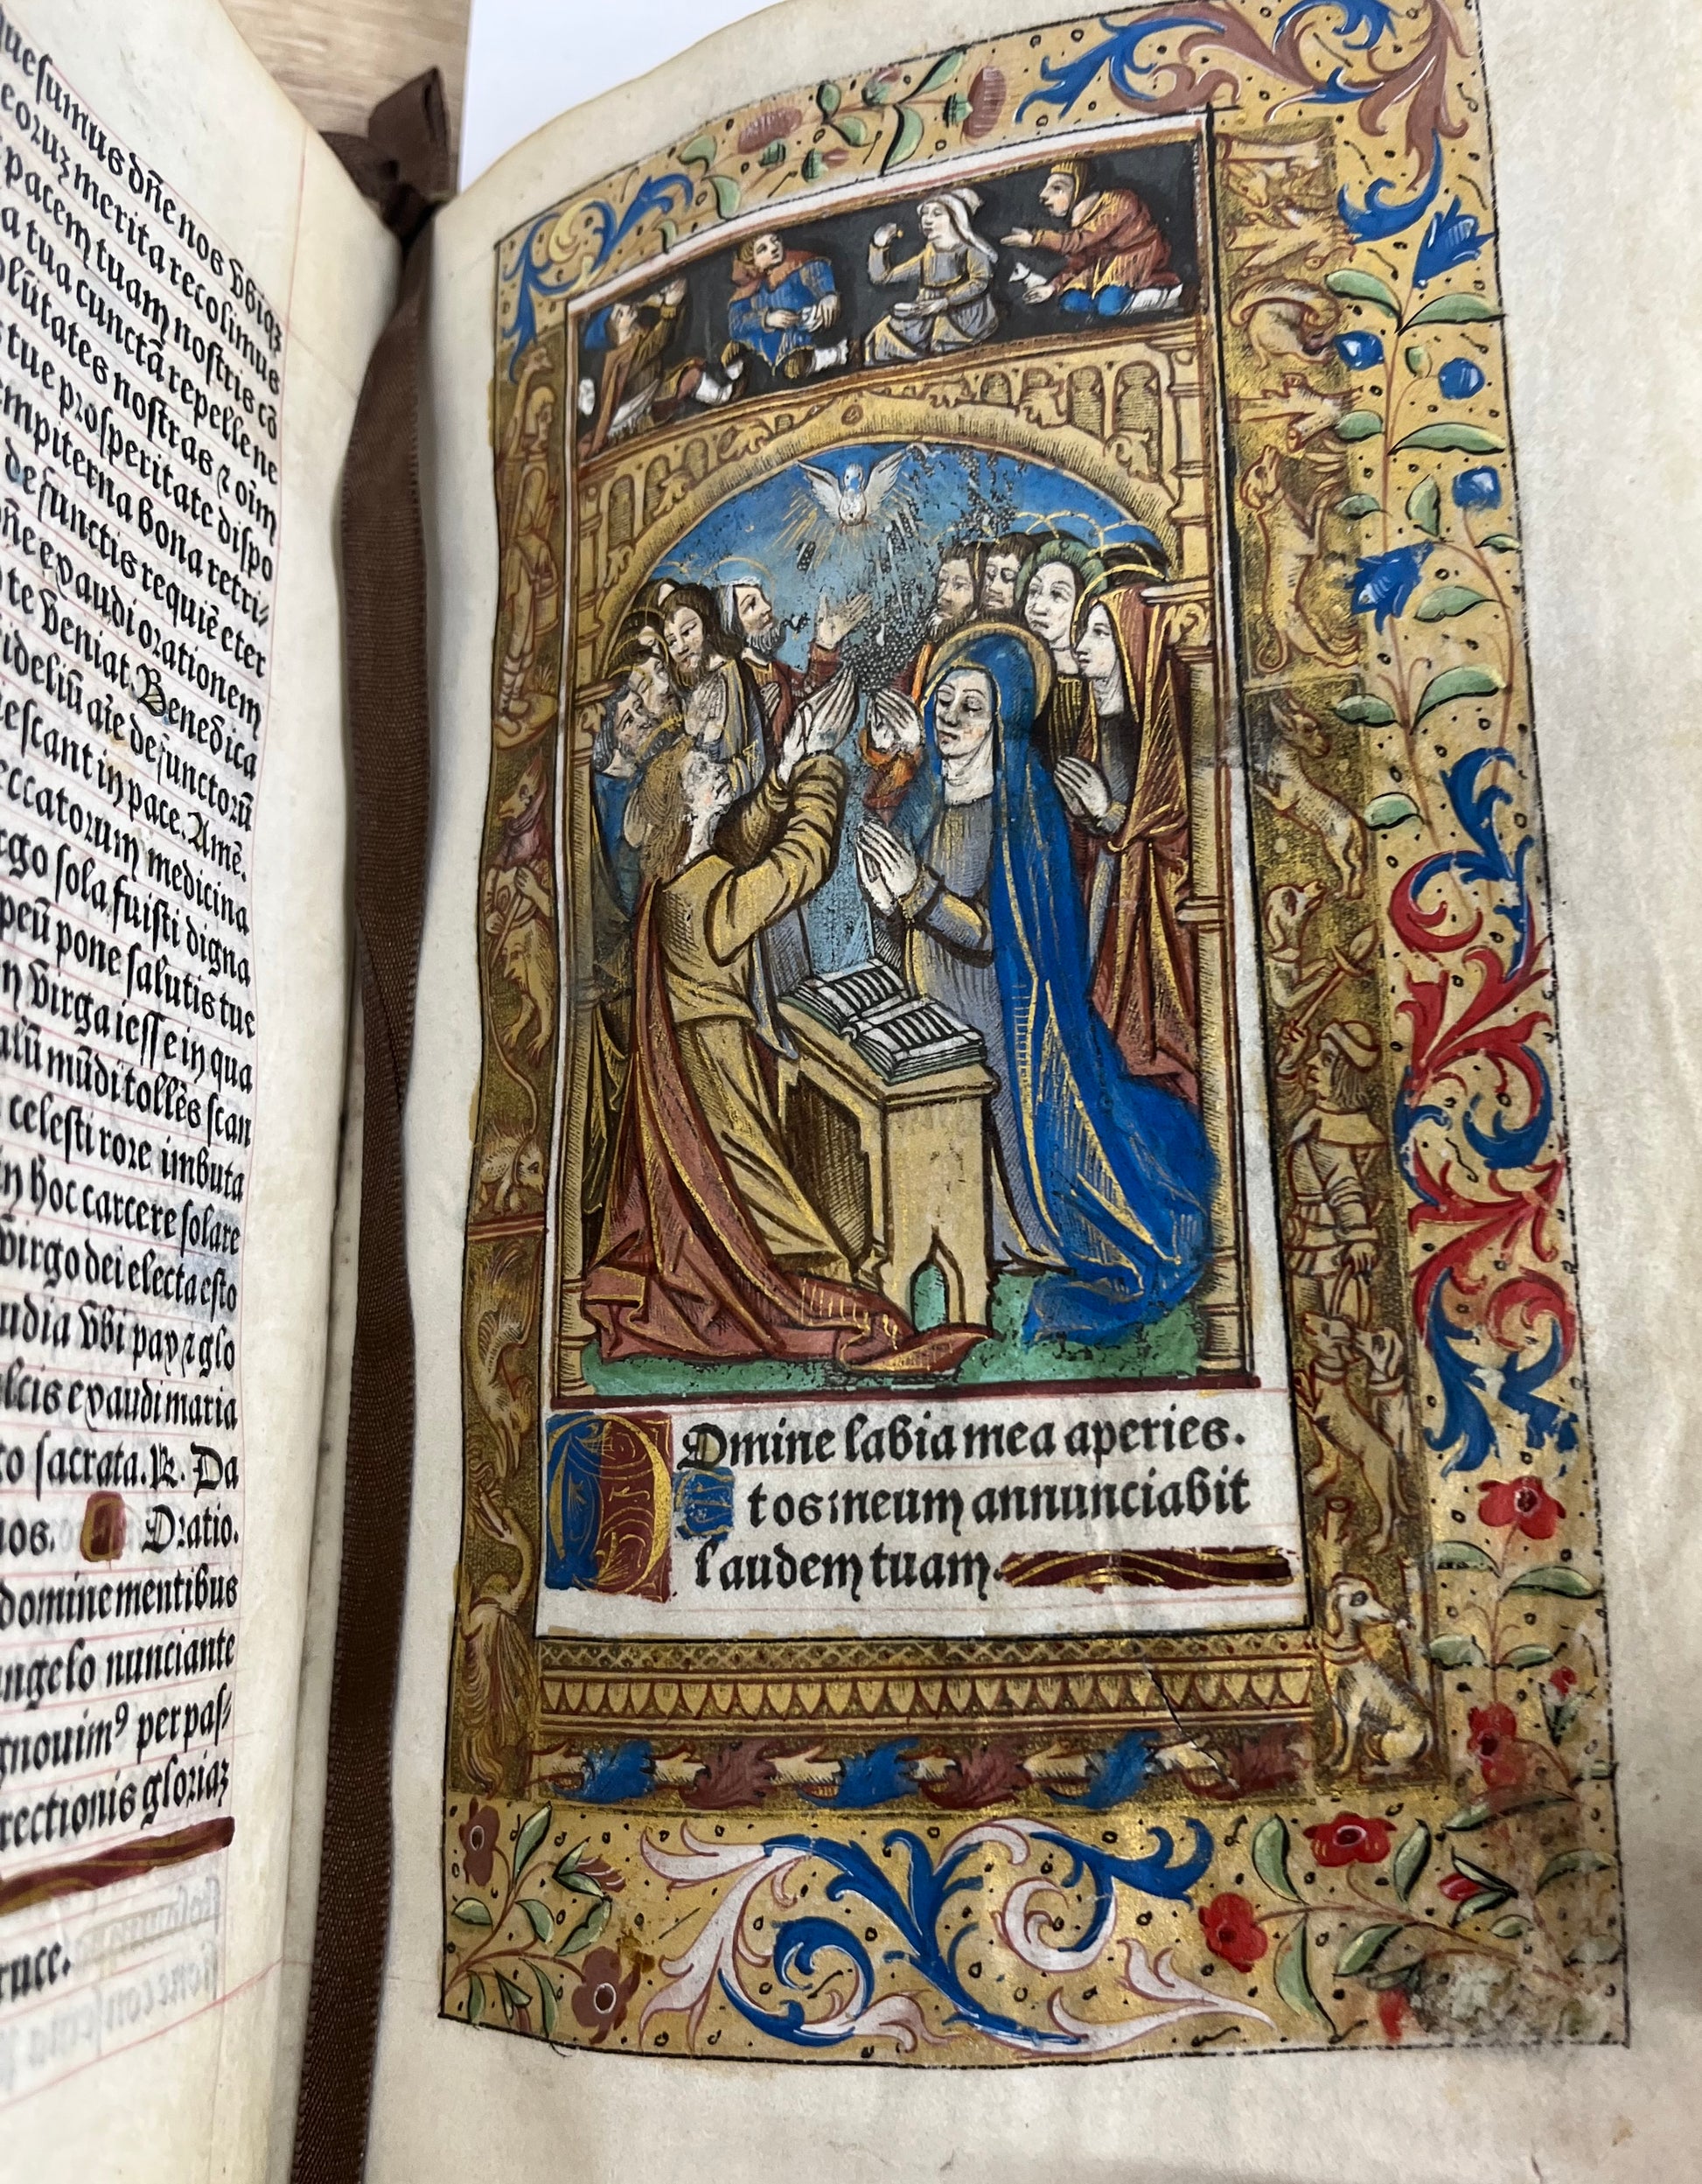 quesumus dñe nos vbiqꝫ
eoruꝫ merita recolimus
pacem tuam nostris cō
a tua cunctā repellene
olūtates nostras ꝛ oīm
tue prosperitate dispo
empiterna bona retri⸗
defunctis requiē eter
ñe exaudi orationem
te veniat. Benedica
fideliū aīe defunctorū
iescant in pace. Amē.
eccatorum medicina
rgo sola fuisti digna
peū pone salutis tue
n virga iesse in qua
atū mūdi tollēs scan
celesti rore imbuta
in hoc carcere solare
virgo dei electa esto
udia vbi pax ꝛ glo
ulcis exaudi maria
to sacrata. ℟. Da
nos. Oratio.
domine mentibus
ngelo nunciante
gnouimꝰ per pas⸗
rectionis gloriaꝫ
ruce.
DOmine labia mea aperies.
Et os meum annunciabit
laudem tuam.